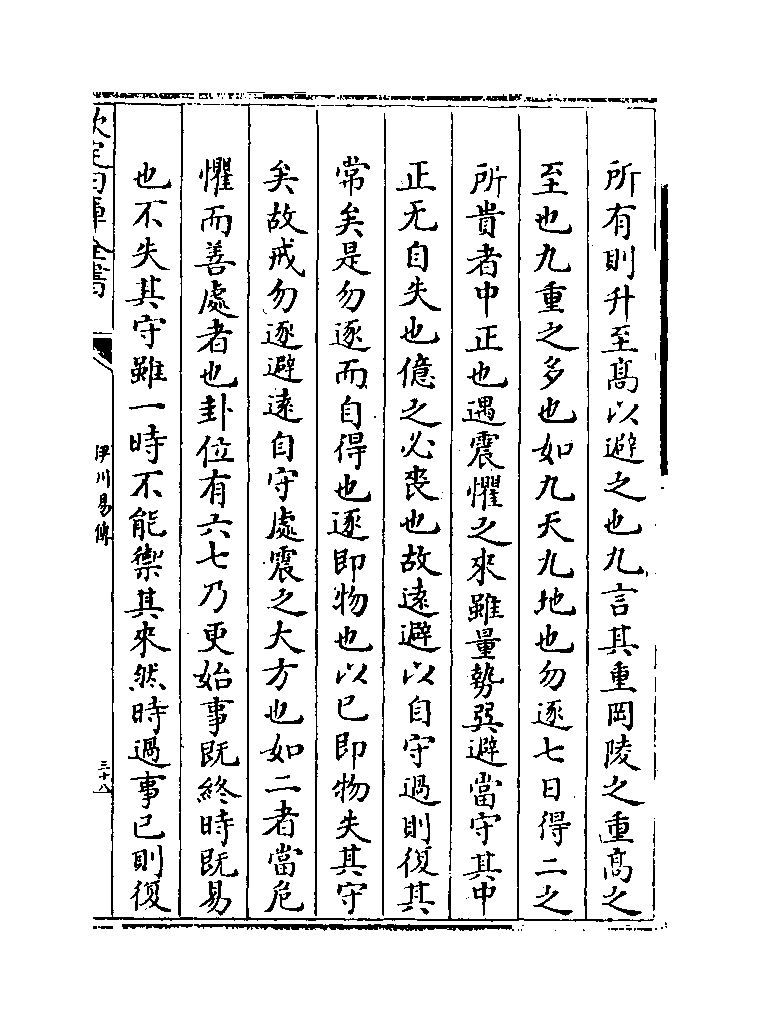 所有則升至髙以避之也九言其重岡陵之重髙之
至也九重之多也如九天九地也勿逐七日得二之
所貴者中正也遇震懼之來雖量勢巽避當守其中
正无自失也億之必喪也故遠避以自守過則復其
常矣是勿逐而自得也逐即物也以已即物失其守
矣故戒勿逐避遠自守處震之大方也如二者當危
懼而善處者也卦位有六七乃更始事既終時既易
也不失其守雖一時不能禦其來然時過事已則復
欽定四庫全書
伊川易傳
三十八